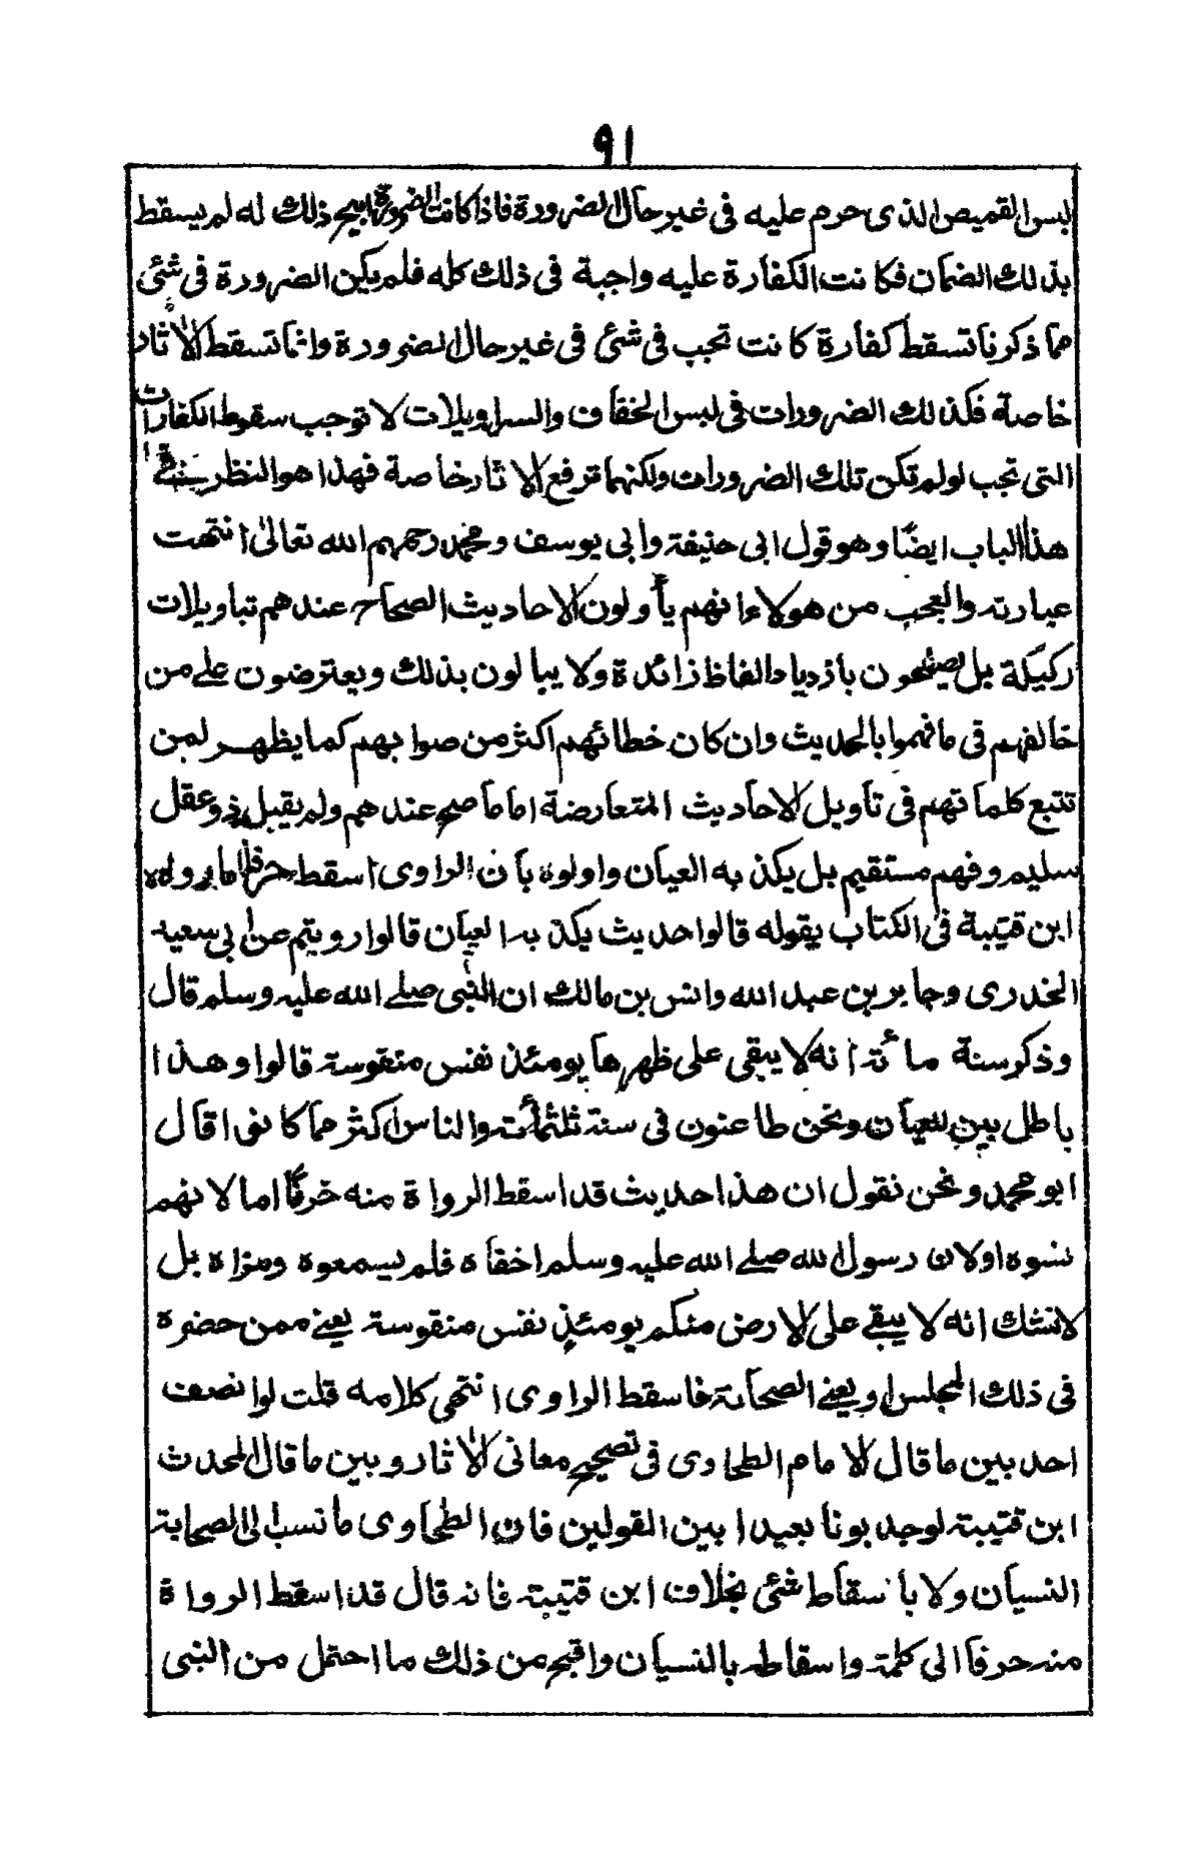 ٩١
لبس القميص الذى حرم عليه فى غير حال الضرورة فاذا كانت الضرورة ابيح ذلك له لم يسقط
بذلك الضمان فكانت الكفارة عليه واجبة فى ذلك كله فلم يكن الضرورة فى شئى
مما ذكرنا تسقط كفارة كانت تجب فى شئى فى غير حال الضرورة وانما تسقط الاٰثار
خاصة فكذلك الضرورات فى لبس الخفاف والسراويلات لا توجب سقوط الكفارات
التى تجب لو لم تكن تلك الضرورات ولكنها ترفع الاٰثار خاصة فهذا هو النظر فى
هذا الباب ايضًا وهو قول ابى حنيفة وابى يوسف ومحمد رحمهم الله تعالىٰ انتهت
عبارته والعجب من هولاء انهم يأولون الاحاديث الصحاح عندهم بتاويلات
ركيكة بل يصححون بازدياد الفاظ زائدة ولا يبالون بذلك ويعترضون علے من
خالفهم فى ما فهموا بالحديث وان كان خطائهم اكثر من صوابهم كما يظهر لمن
تتبع كلماتهم فى تاويل الاحاديث المتعارضة اما ما صح عندهم ولم يقبل ذو عقل
سليم وفهم مستقيم بل يكذبه العيان واولوه بأن الراوى اسقط حرفا ما رواه
ابن قتيبة فى الكتاب يقوله قالوا حديث يكذبه العيان قالوا رويتم عن ابى سعيد
الخدرى وجابر بن عبد الله وانس بن مالك ان النبى صلے الله عليه وسلم قال
وذكر سنة مائة انه لا يبقى على ظهرها يومئذ نفس منفوسة قالوا وهذا
باطل بين للعيان ونحن طاعنون فى سنة ثلثمائة والناس اكثر مما كانوا قال
ابو محمد ونحن نقول ان هذا حديث قد اسقط الرواة منه حرفًا اما لانهم
نسوه او لان رسول الله صلے الله عليه وسلم اخفاه فلم يسمعوه ونراه بل
لا نشك انه لا يبقے على الارض منكم يومئذٍ نفس منفوسة يعنے ممن حضره
فى ذلك المجلس او يعنے الصحابة فاسقط الراوى انتهى كلامه قلت لو انصف
احد بين ما قال الامام الطحاوى فى تصحيح معانى الاٰثار وبين ما قال المحدث
ابن قتيبة لوجد بونا بعيدا بين القولين فان الطحاوى ما نسب الى الصحابة
النسيان ولا بأسقاط شئى بخلاف ابن قتيبة فانه قال قد اسقط الرواة
منه حرفا الى كلمة واسقاطه بالنسيان واقبح من ذلك ما احتمل من النبى